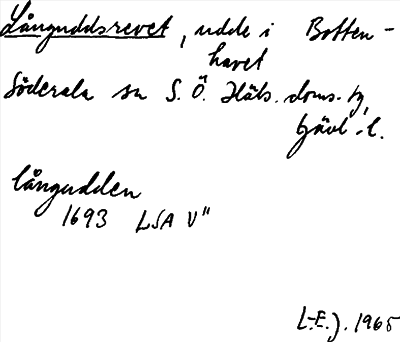 Långuddsrevet, udde i Botten-
havet
Söderala sn S. Ö. Häls. doms. tg,
Gävl. l.
långudden
1693 LSA V"
L-E. J. 1965